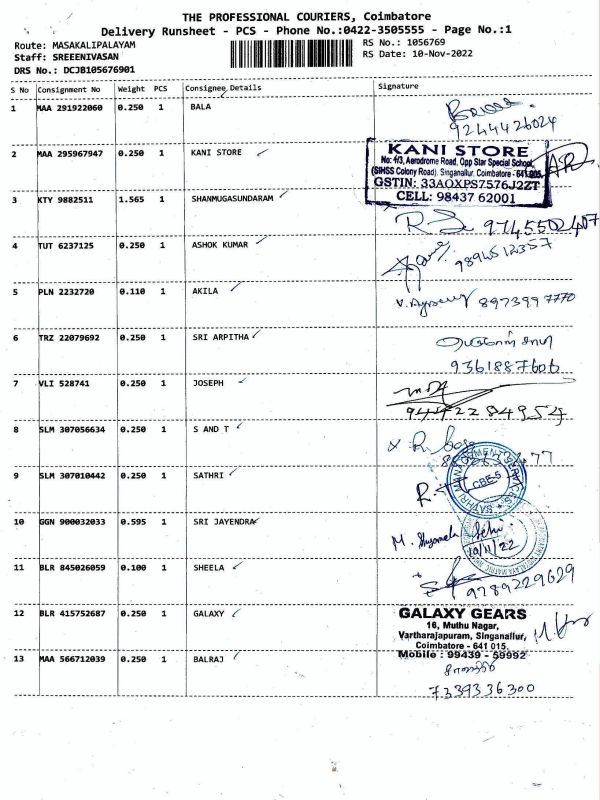 THE PROFESSIONAL COURIERS, Coimbatore
Delivery Runsheet - PCS - Phone No.:0422-3505555 - Page No.:1
Route: MASAKALIPALAYAM
RS No.: 1056769
Staff: SREEENIVASAN
RS Date: 10-Nov-2022
DRS No.: DCJB105676901
S No Consignment No Weight PCS Consignee Details Signature
1 MAA 291922060 0.250 1 BALA
9244426024
2 MAA 295967947 0.250 1 KANI STORE
KANI STORE
No: 4/3, Aerodrome Road, Opp Star Special School,
(SIHSS Colony Road), Singanallur, Coimbatore - 641 005.
GSTIN: 33AOXPS7576J2ZT
CELL: 98437 62001
3 KTY 9882511 1.565 1 SHANMUGASUNDARAM
9745502407
4 TUT 6237125 0.250 1 ASHOK KUMAR
9894512357
5 PLN 2232720 0.110 1 AKILA
8973997770
6 TRZ 22079692 0.250 1 SRI ARPITHA
9361887606
7 VLI 528741 0.250 1 JOSEPH
9442284954
8 SLM 307056634 0.250 1 S AND T
9 SLM 307010442 0.250 1 SATHRI
CBE-5
10 GGN 900032033 0.595 1 SRI JAYENDRA
10/11/22
11 BLR 845026059 0.100 1 SHEELA
9789229629
12 BLR 415752687 0.250 1 GALAXY
GALAXY GEARS
16, Muthu Nagar,
Vartharajapuram, Singanallur,
Coimbatore - 641 015.
Mobile : 99439 - 59992
13 MAA 566712039 0.250 1 BALRAJ
7339336300